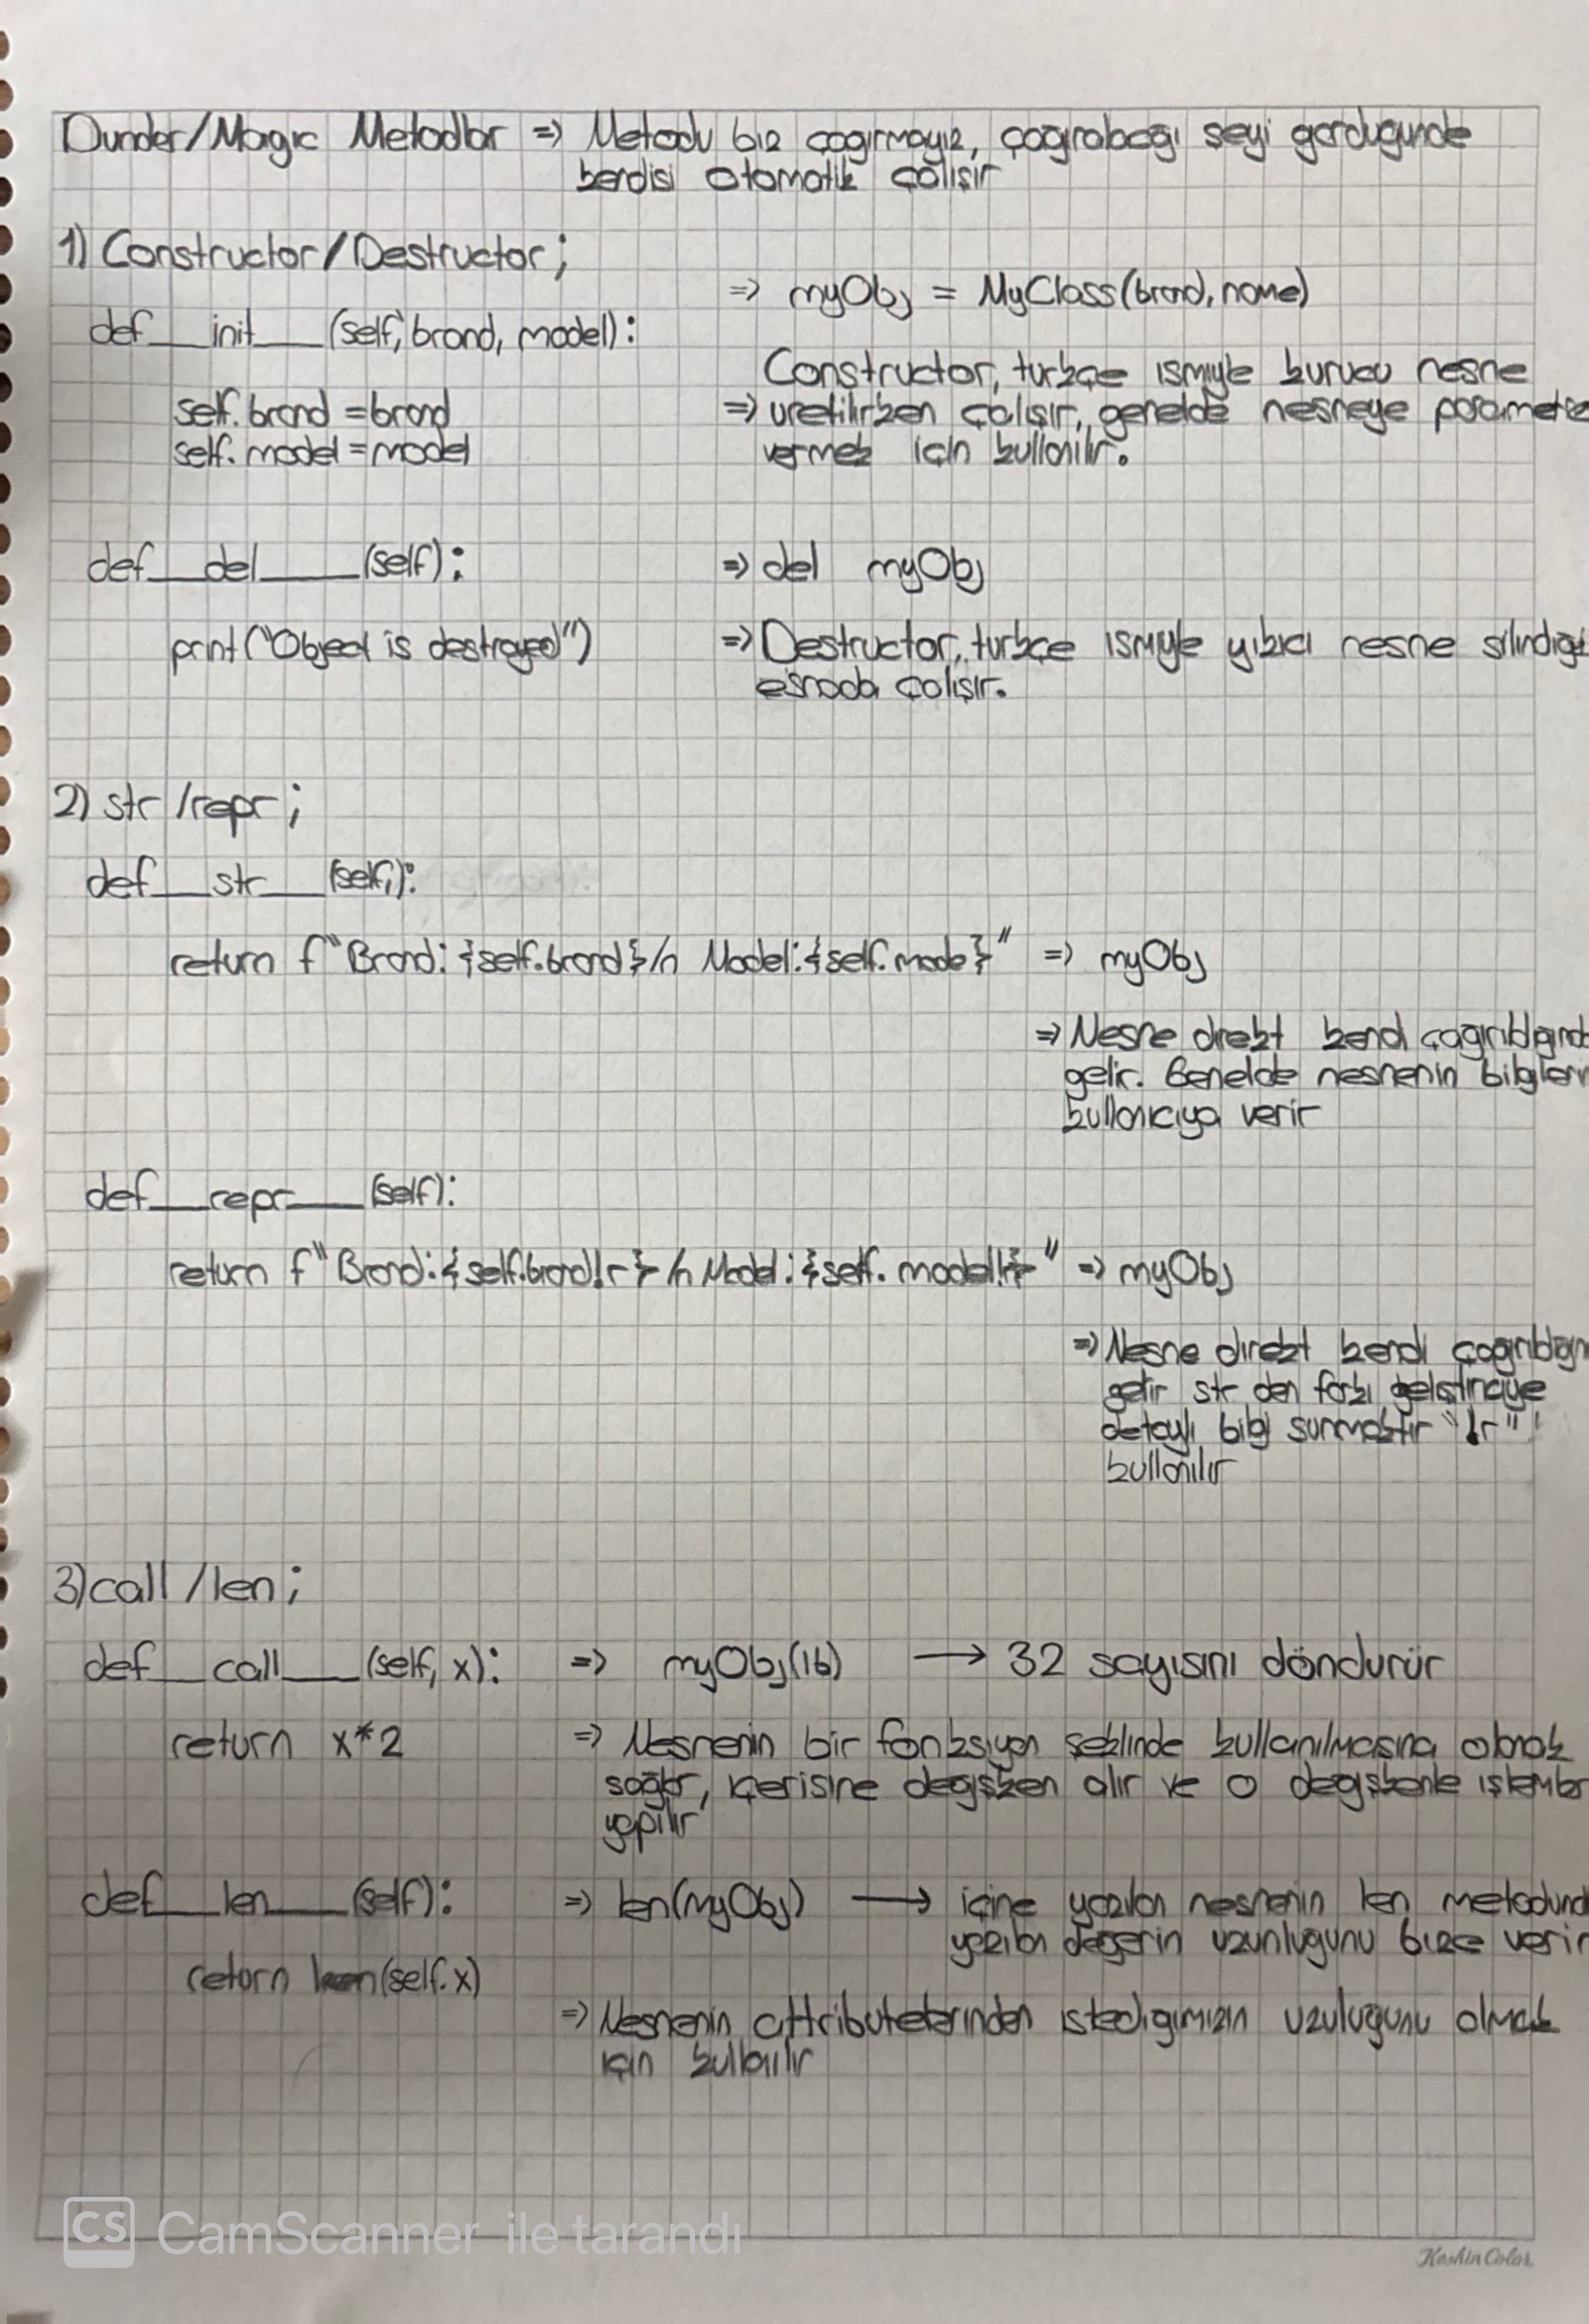 Dunder/Magic Metodlar => Metodu biz çağırmayız, çağıralacağı şeyi gördüğünde
kendisi otomatik çalışır
1) Constructor/Destructor;
=> myObj = MyClass(brand, name)
def __init__ (self, brand, model):
Constructor, türkçe ismiyle kurucu nesne
self.brand = brand => üretilirken çalışır, genelde nesneye parametre
self.model = model vermek için kullanılır.
def __del__ (self): => del myObj
print("Object is destroyed") => Destructor, türkçe ismiyle yıkıcı nesne silindiği
esnada çalışır.
2) str /repr ;
def __str__ (self,):
return f"Brand: {self.brand}/n Model:{self.mode}" => myObj
=> Nesne direkt kendi çağırıldığında
gelir. Genelde nesnenin bilgilerin
kullanıcıya verir
def __repr__ (self):
return f"Brand:{self.brand!r} /n Model:{self.model!r}" => myObj
=> Nesne direkt kendi çağırıldığın
gelir str den farkı geliştiriciye
detaylı bilgi sunmaktır "!r"
kullanılır
3) call /len ;
def __call__ (self, x): => myObj(16) → 32 sayısını döndürür
return x*2 => Nesnenin bir fonksiyon şeklinde kullanılmasına olanak
sağlar, içerisine değişken alır ve o değişkenle işlemler
yapılır
def __len__ (self): => len(myObj) → içine yazılan nesnenin len metodund
yazılan değerin uzunluğunu bize verir
return len(self.x)
=> Nesnenin attributelerinden istediğimizin uzuluğunu almak
için kullaılır
CS CamScanner ile tarandı